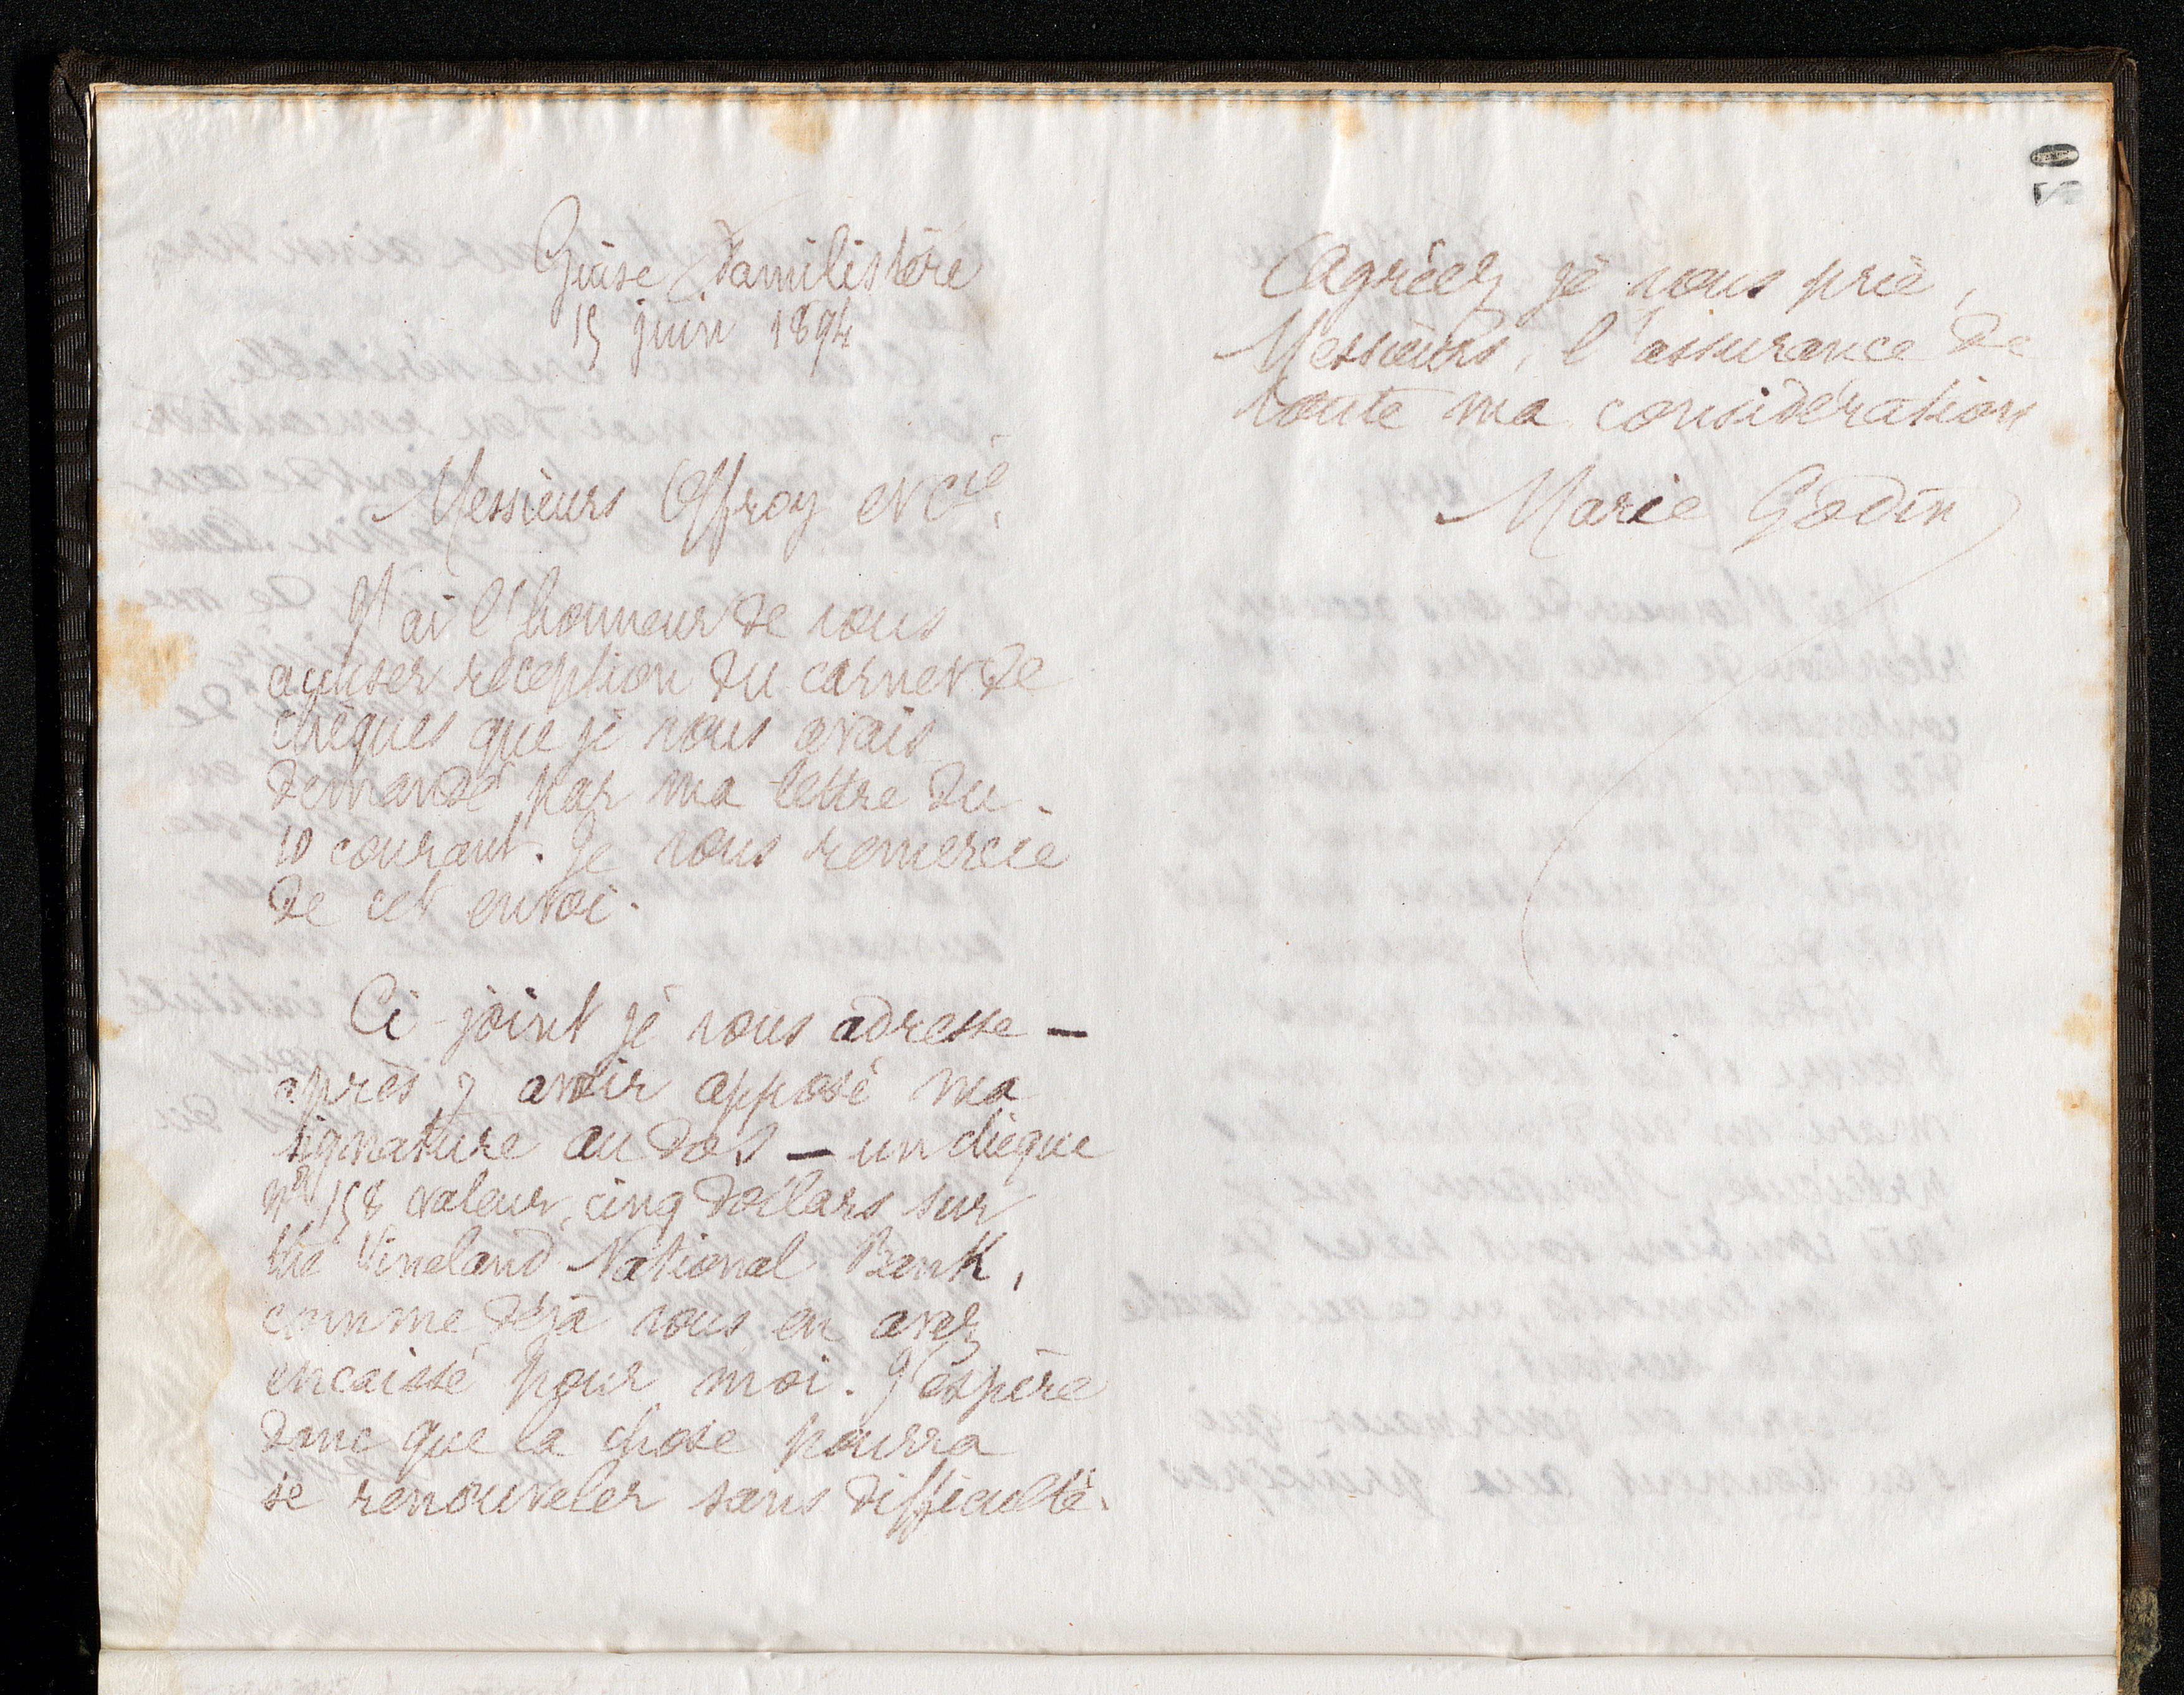 Guise Familistère
15 juin 1894
Messieurs Offroy et Cie,
J'ai l'honneur de vous
accuser réception du carnet de
chèques que je vous avais
demandé par ma lettre du
10 courant. Je vous remercie
de cet envoi.
Ci-joint je vous adresse —
après y avoir apposé ma
signature au dos — un chèque
No 158 valeur, cinq dollars sur
the Vineland National Bank,
comme déjà vous en avez
encaissé pour moi. J'espère
donc que la chose pourra
se renouveler sans difficulté.
Agréez je vous prie,
Messieurs, l'assurance de
toute ma considération
Marie Godin